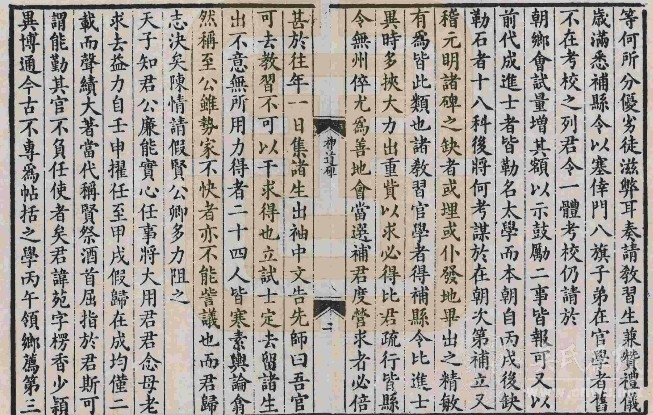 等何所分優劣徒滋弊耳奏請教習生兼贊禮儀
歲滿悉補縣令以塞倖門八旗子弟在官學者舊
不在考校之列君令一體考校仍請於
朝鄉會試量增其額以示鼓勵二事皆報可又以
前代成進士者皆勒名太學而本朝自丙戌後缺
勒石者十八科後將何考謀於在朝次第補立又
稽元明諸碑之缺者或埋或仆發地畢出之精敏
有為皆此類也諸教習官學者得補縣令比進士
異時多挾大力出重貲以求必得比君疏行皆縣
令無州倅尤為善地會當選補君度營求者必倍
神道碑
二
甚於往年一日集諸生出袖中文告先師曰吾官
可去教習不可以干求得也立試士定去留諸生
出不意無所用力得者二十四人皆寒素輿論翕
然稱至公雖勢家不快者亦不能訾議也而君歸
志決矣陳情請假賢公卿多力阻之
天子知君公廉能實心任事將大用君君念母老
求去益力自壬申擢任至甲戌假歸在成均僅二
載而聲績大著當代稱賢祭酒首屈指於君斯可
謂能勤其官不負任使者矣君諱苑字楞香少穎
異博通今古不專為帖括之學丙午領鄉薦第三